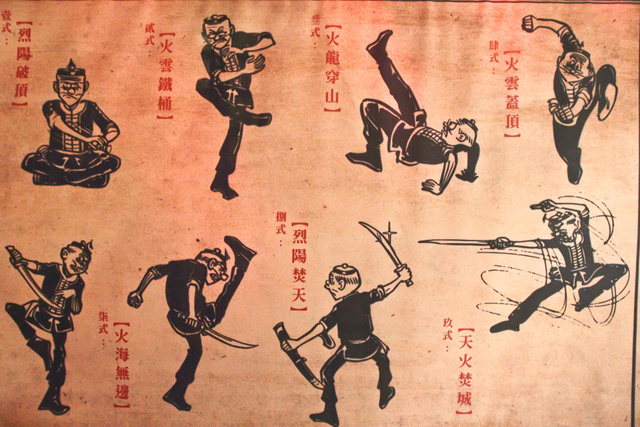 壹式：
【烈陽破頂】
貳式：
【火雲鐵桶】
叁式：
【火龍穿山】
肆式：
【火雲蓋頂】
柒式：
【火海無邊】
捌式：
【烈陽焚天】
玖式：
【天火焚城】